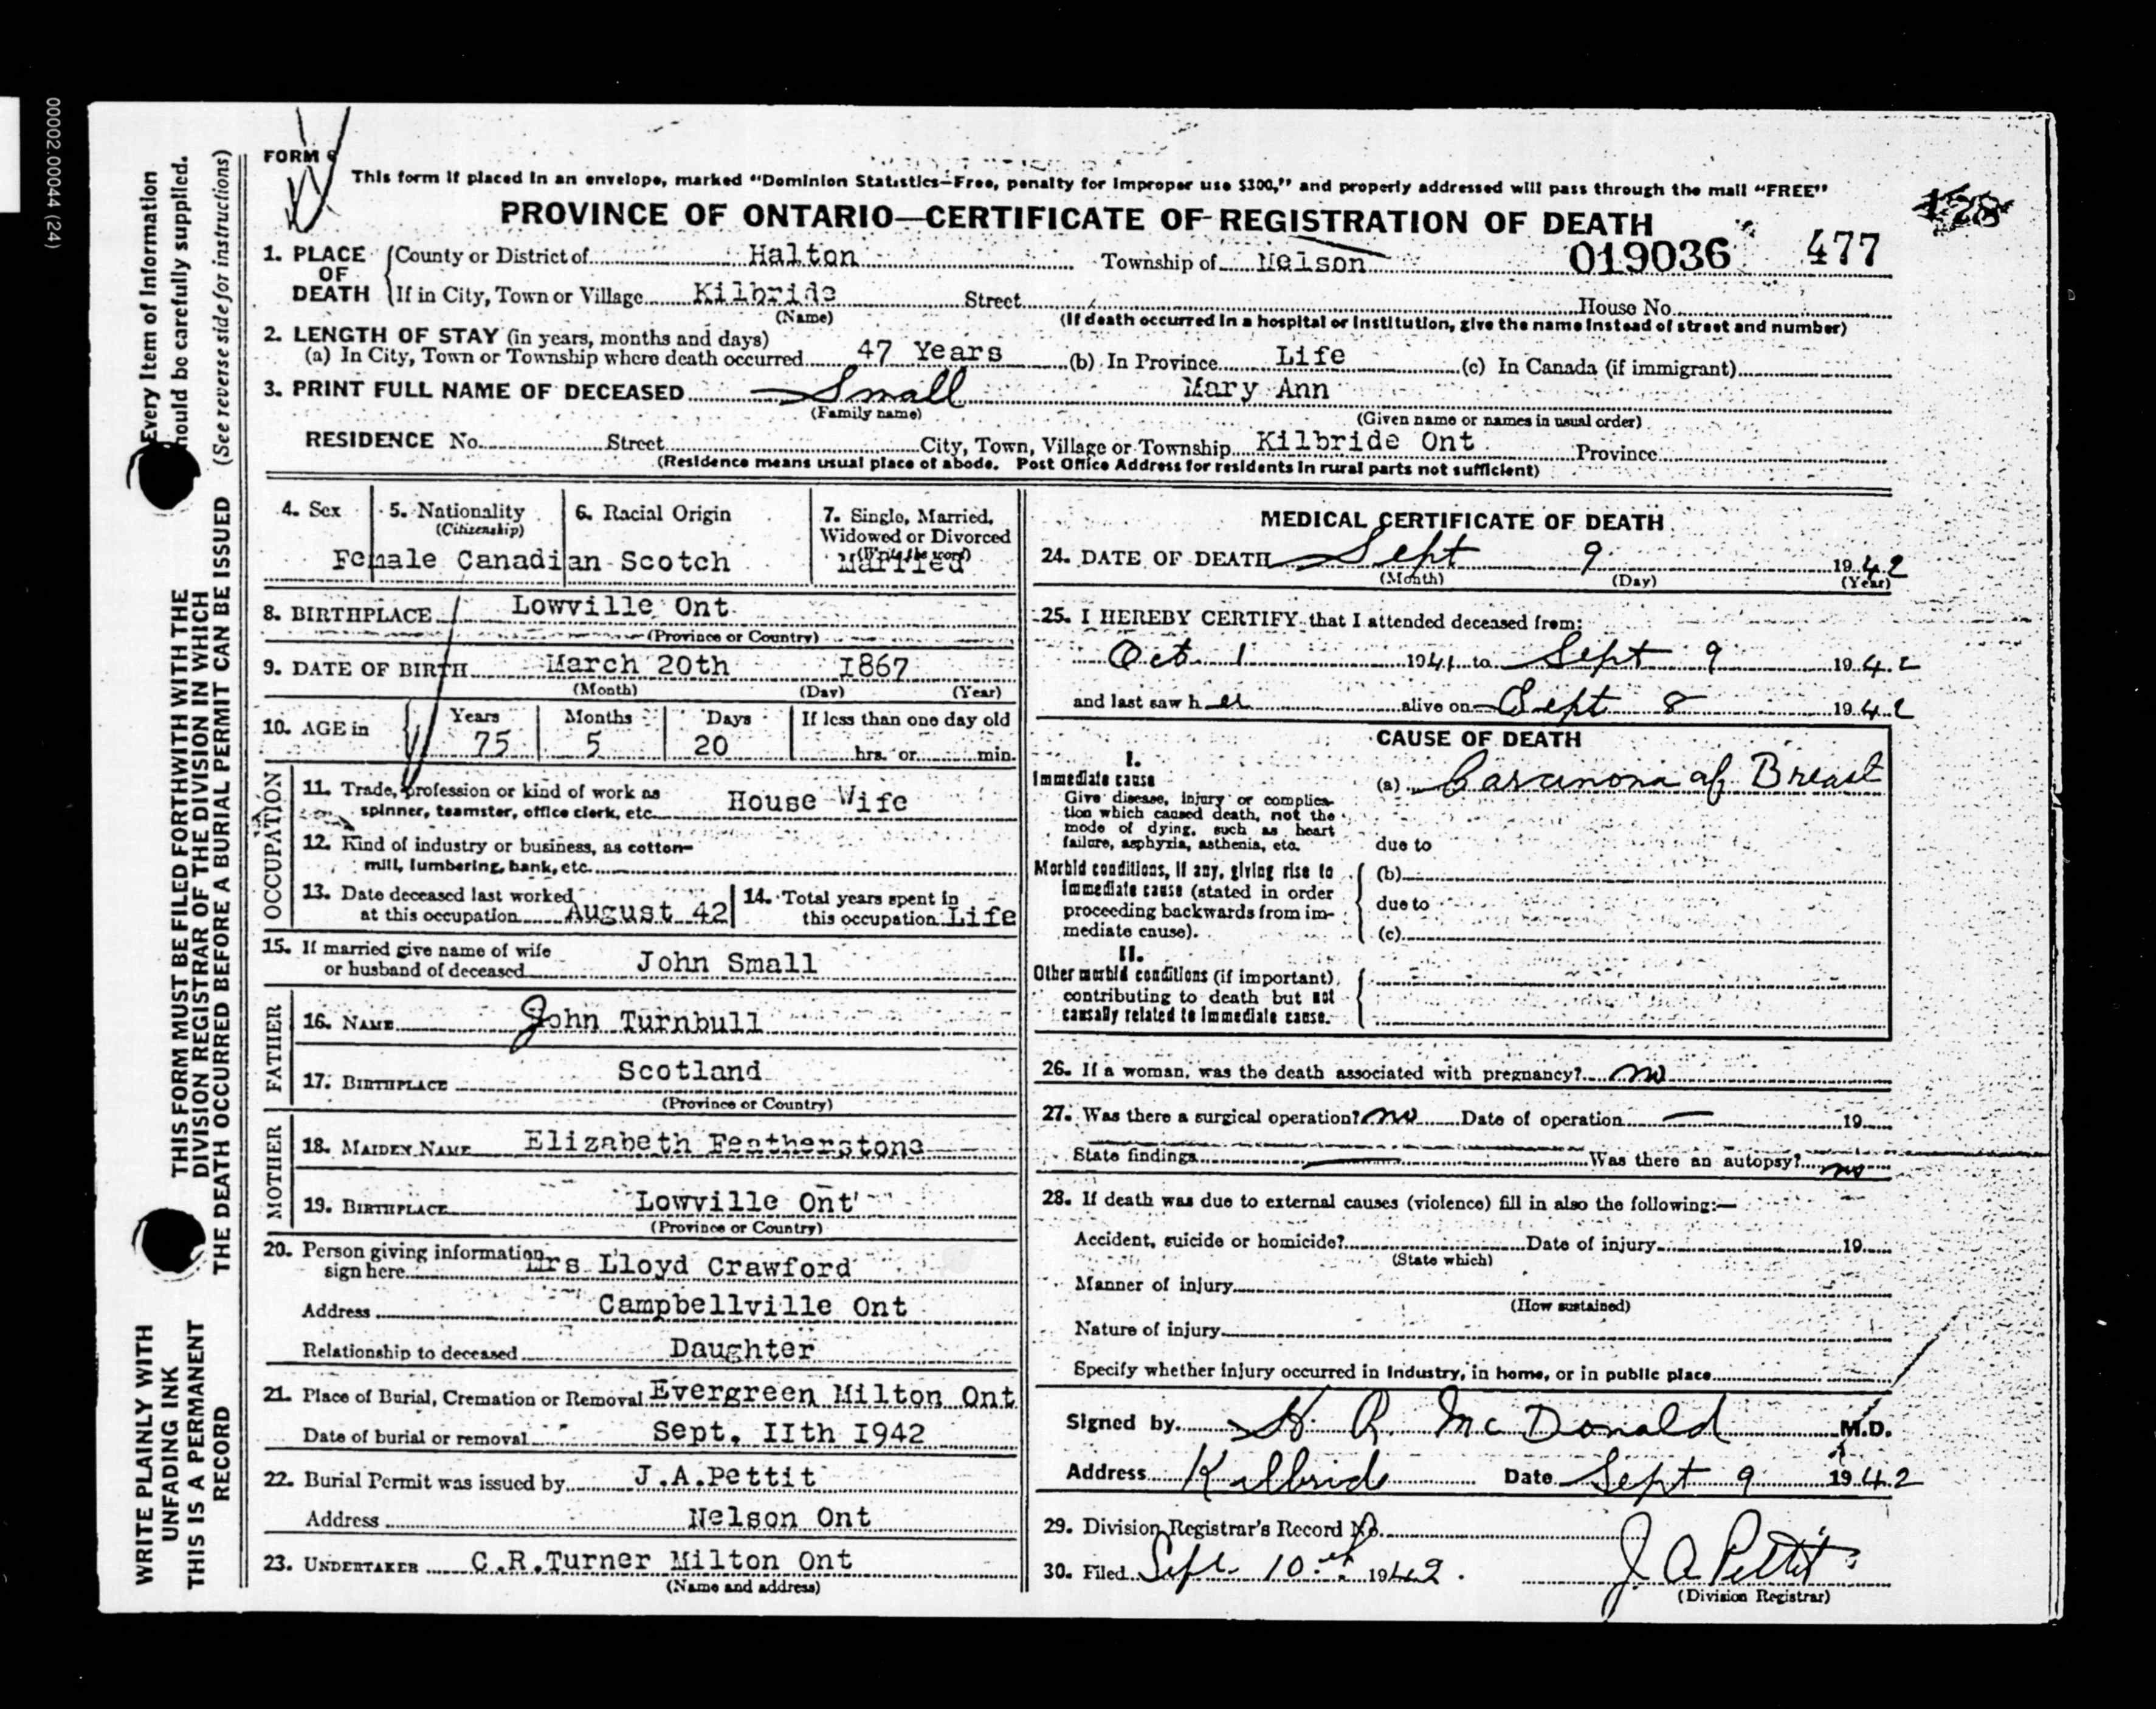 00002.00044 (24)
Every Item of Information
should be carefully supplied.
(See reverse side for instructions)
THIS FORM MUST BE FILED FORTHWITH WITH THE
DIVISION REGISTRAR OF THE DIVISION IN WHICH
THE DEATH OCCURRED BEFORE A BURIAL PERMIT CAN BE ISSUED
WRITE PLAINLY WITH
UNFADING INK
THIS IS A PERMANENT
RECORD
FORM
This form if placed in an envelope, marked "Dominion Statistics—Free, penalty for improper use $300," and properly addressed will pass through the mail "FREE"
PROVINCE OF ONTARIO—CERTIFICATE OF REGISTRATION OF DEATH
019036 477
1. PLACE OF DEATH County or District of Halton Township of Nelson
If in City, Town or Village Kilbride Street House No.
(Name) (If death occurred in a hospital or institution, give the name instead of street and number)
2. LENGTH OF STAY (in years, months and days)
(a) In City, Town or Township where death occurred 47 Years (b) In Province Life (c) In Canada (if immigrant)
3. PRINT FULL NAME OF DECEASED Small Mary Ann
(Family name) (Given name or names in usual order)
RESIDENCE No. Street City, Town, Village or Township Kilbride Ont Province
(Residence means usual place of abode. Post Office Address for residents in rural parts not sufficient)
4. Sex 5. Nationality 6. Racial Origin 7. Single, Married,
(Citizenship) Widowed or Divorced
(Write the word)
Female Canadian Scotch Married
8. BIRTHPLACE Lowville Ont
(Province or Country)
9. DATE OF BIRTH March 20th 1867
(Month) (Day) (Year)
10. AGE in Years Months Days If less than one day old
75 5 20 hrs. or min.
OCCUPATION
11. Trade, profession or kind of work as
spinner, teamster, office clerk, etc. House Wife
12. Kind of industry or business, as cotton-
mill, lumbering, bank, etc.
13. Date deceased last worked
at this occupation August 42
14. Total years spent in
this occupation Life
15. If married give name of wife
or husband of deceased John Small
FATHER
16. NAME John Turnbull
17. BIRTHPLACE Scotland
(Province or Country)
MOTHER
18. MAIDEN NAME Elizabeth Featherstone
19. BIRTHPLACE Lowville Ont
(Province or Country)
20. Person giving information
sign here Mrs Lloyd Crawford
Address Campbellville Ont
Relationship to deceased Daughter
21. Place of Burial, Cremation or Removal Evergreen Milton Ont
Date of burial or removal Sept. IIth I942
22. Burial Permit was issued by J.A.Pettit
Address Nelson Ont
23. UNDERTAKER C.R.Turner Milton Ont
(Name and address)
MEDICAL CERTIFICATE OF DEATH
24. DATE OF DEATH Sept 9 1942
(Month) (Day) (Year)
25. I HEREBY CERTIFY that I attended deceased from:
Oct 1 1941 to Sept 9 1942
and last saw her alive on Sept 8 1942
CAUSE OF DEATH
I.
Immediate cause
Give disease, injury or complica-
tion which caused death, not the
mode of dying, such as heart
failure, asphyxia, asthenia, etc.
(a) Carcinoma of Breast
due to
Morbid conditions, if any, giving rise to
immediate cause (stated in order
proceeding backwards from im-
mediate cause).
(b)
due to
(c)
II.
Other morbid conditions (if important)
contributing to death but not
causally related to immediate cause.
26. If a woman, was the death associated with pregnancy? no
27. Was there a surgical operation? no Date of operation — 19
State findings Was there an autopsy? no
28. If death was due to external causes (violence) fill in also the following:—
Accident, suicide or homicide? Date of injury 19
(State which)
Manner of injury
(How sustained)
Nature of injury
Specify whether injury occurred in industry, in home, or in public place
Signed by H. R. McDonald M.D.
Address Kilbride Date Sept 9 1942
29. Division Registrar's Record No.
30. Filed Sept 10th 1942. J A Pettit
(Division Registrar)